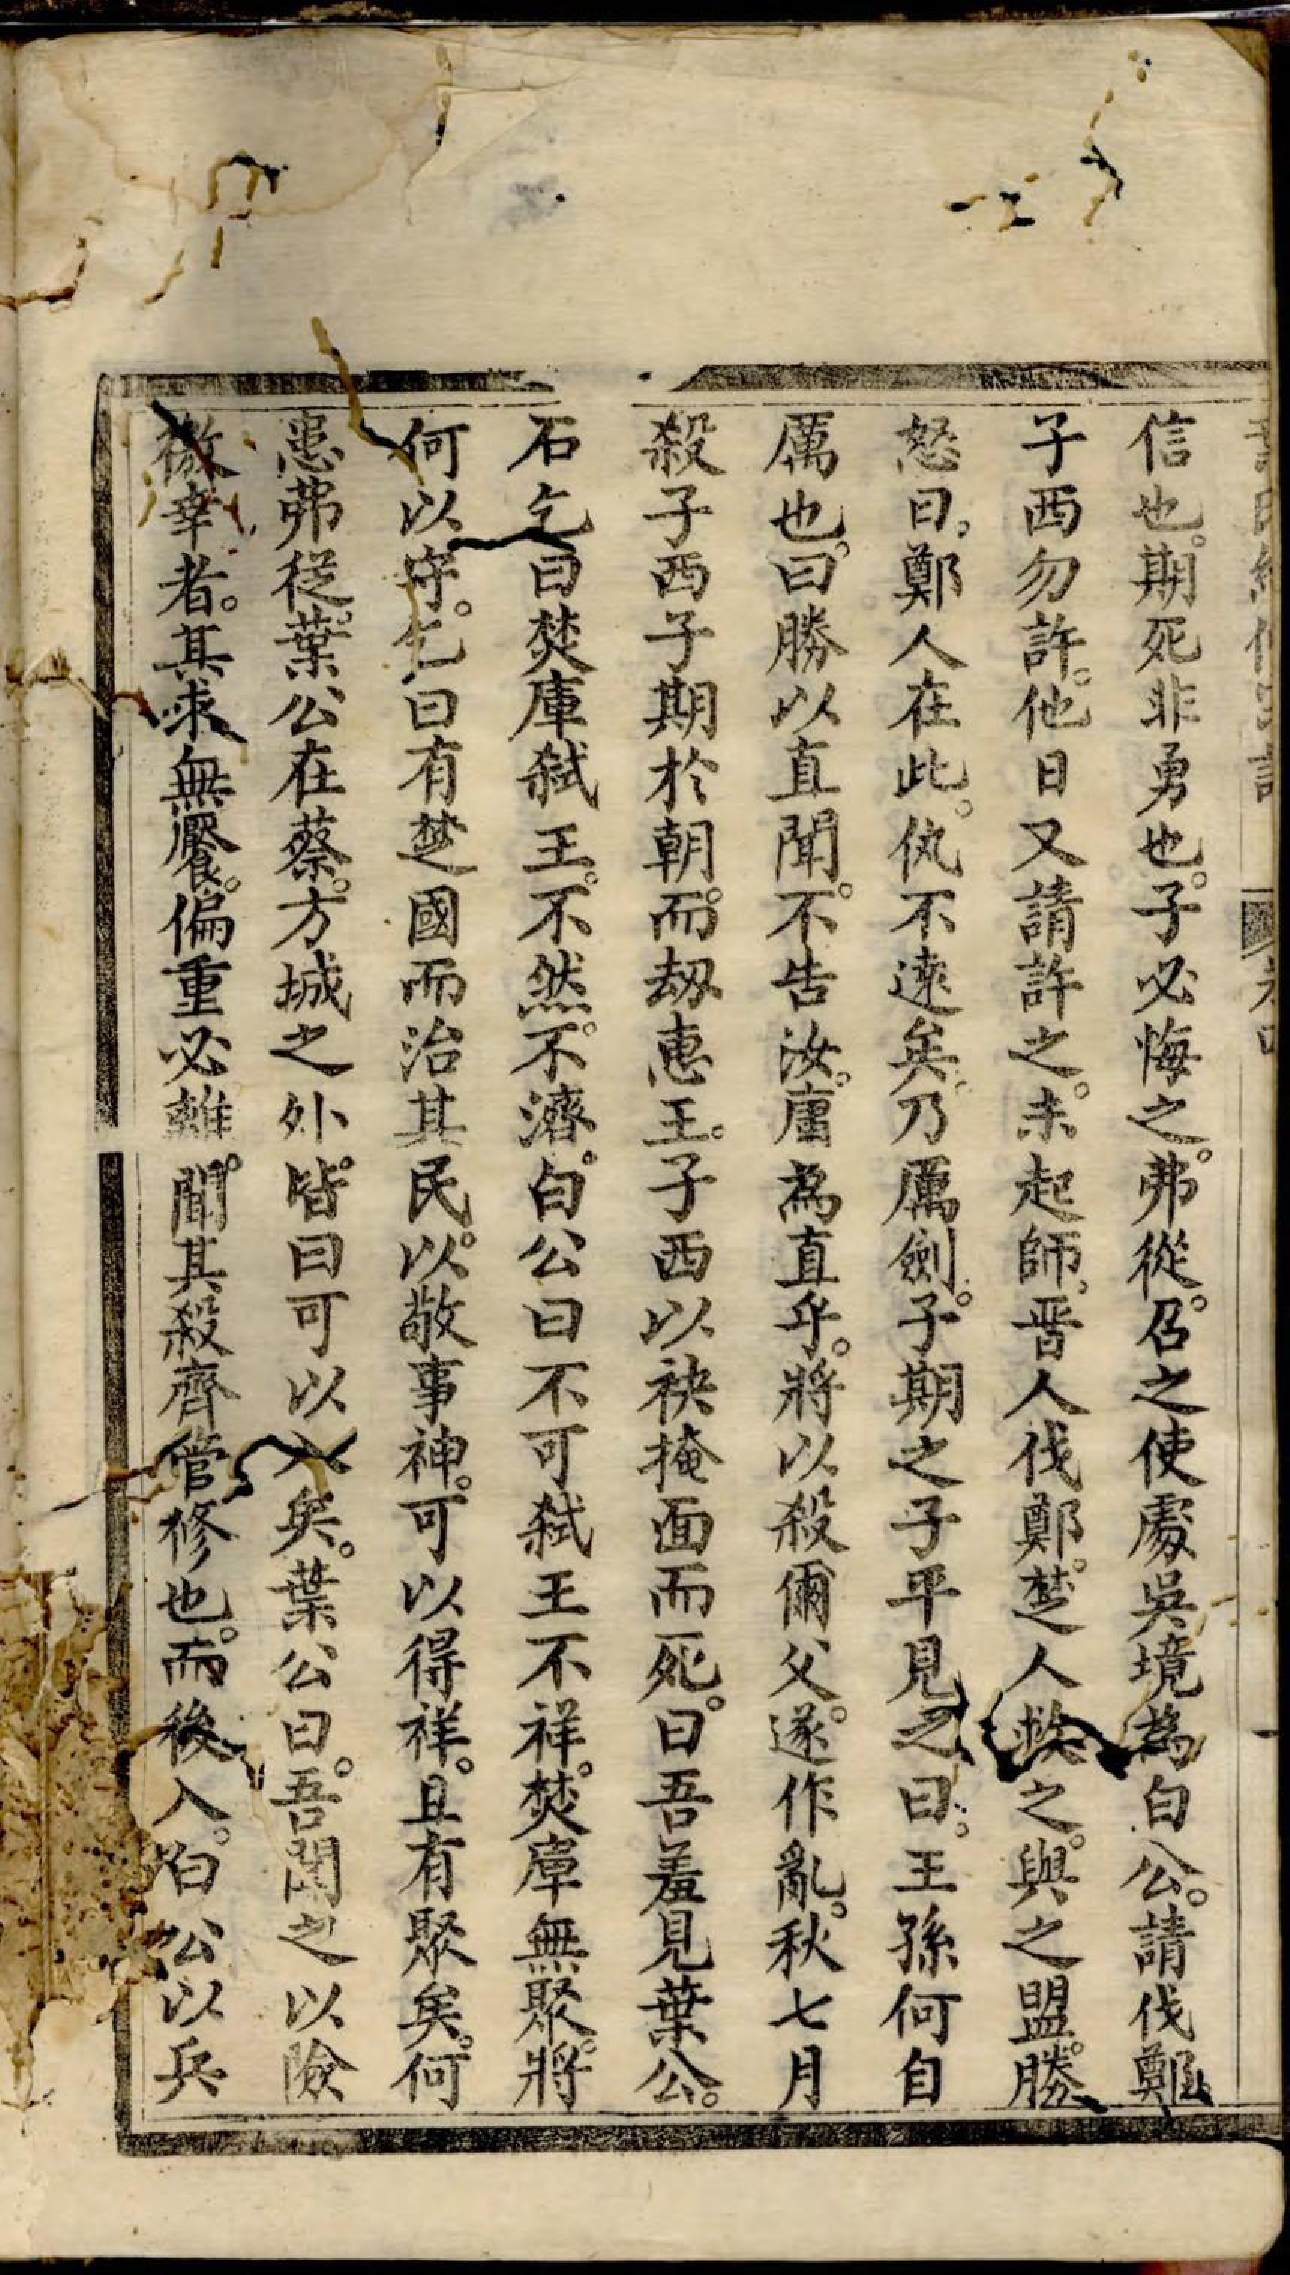 信也。期死非勇也。子必悔之。弗從。召之使處吳境為白公。請伐鄭
子西勿許。他日又請許之。未起師。晉人伐鄭。楚人救之。與之盟。勝
怒曰。鄭人在此。仇不遠矣。乃厲劍。子期之子平見之曰。王孫何自
厲也。曰勝以直聞。不告汝。庸為直乎。將以殺爾父。遂作亂。秋七月
殺子西子期於朝。而劫惠王。子西以袂掩面而死。曰吾羞見葉公。
石乞曰焚庫弒王。不然。不濟。白公曰不可弒王不祥。焚庫無聚。將
何以守。乞曰有楚國而治其民。以敬事神。可以得祥。且有聚矣。何
患弗從。葉公在蔡。方城之外。皆曰可以入矣。葉公曰。吾聞之以險
徼幸者。其求無饜。偏重必離。聞其殺齊管修也。而後入。白公以兵